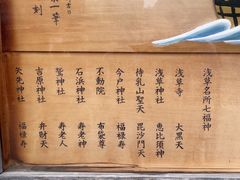 浅草名所七福神
浅草寺 大黒天
浅草神社 恵比須神
待乳山聖天 毘沙門天
今戸神社 福禄寿
不動院 布袋尊
石浜神社 寿老神
鷲神社 寿老人
吉原神社 弁財天
矢先神社 福禄寿
第一華
刻